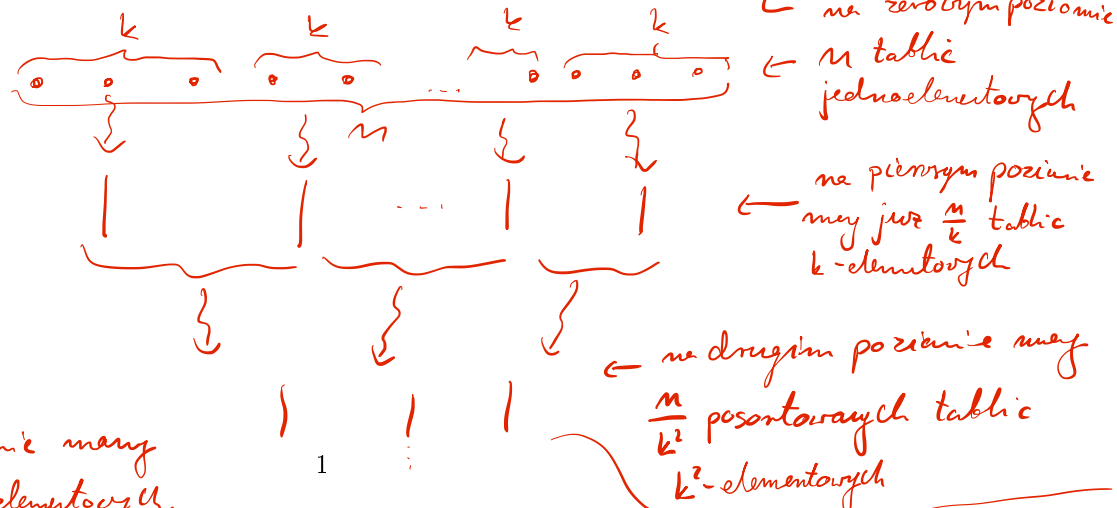 k k k k
na zerowym poziomie
n tablic
jednoelementowych
...
n
na pierwszym poziomie
mamy już n/k tablic
...
k-elementowych
na drugim poziomie mamy
n/k² posortowanych tablic
k²-elementowych
mamy
elementowych.
1